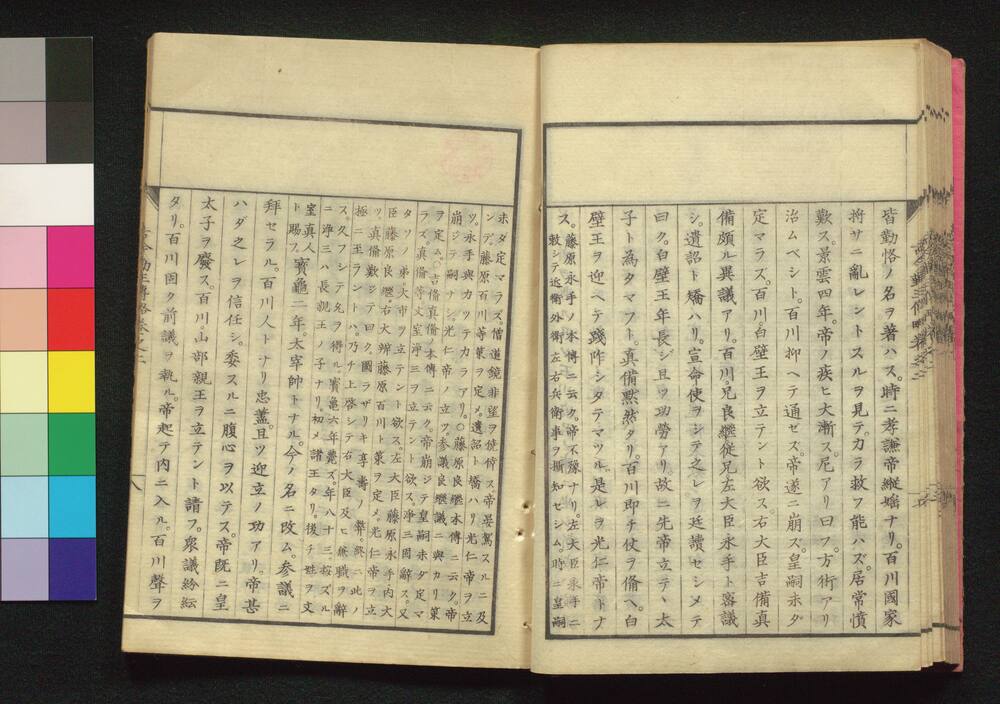 皆勤恪ノ名ヲ著ハス。時ニ孝謙帝縦婬ナリ。百川國家
将サニ亂レントスルヲ見テ。カラ救フ能ハズ。居常憤
歎ス。景雲四年。帝ノ疾ヒ大漸ス。尼アリ曰フ。方術アリ
治ムベシト。百川抑ヘテ通ゼズ。帝遂ニ崩ズ。皇嗣未ダ
定マラズ。百川白壁王ヲ立テント欲ス。右大臣吉備真
備頗ル異議アリ。百川兄良継従兄左大臣永手ト密議
シ。遺詔ト矯ハリ。宣命使ヲシテ之レヲ廷讀セシメテ
曰ク。白壁王年長シ。且ツ功勞アリ。故ニ先帝立テヽ太
子ト為タマフト。真備黙然タリ。百川即チ仗ヲ備ヘ。白
壁王ヲ迎ヘテ践阼シタテマツル。是レヲ光仁帝トナ
ス。藤原永手ノ本傳ニ云ク。帝不豫ナリ。左大臣永手ニ
敕シテ近衛外衛左右兵衛事ヲ摂知セシム。時ニ皇嗣
未ダ定マラス。僧道鏡非望ヲ僥倖ス。帝晏駕スルニ及
ンデ。藤原百川等策ヲ定メ。遺詔ト矯ハリ光仁帝ヲ立
ツ。永手與カツテカラアリ。〇藤原良継本傳ニ云ク。帝
崩ジテ嗣ナシ。光仁帝ノ立ツ参議良継議ニ與カリ策
ヲ定ム。〇吉備真備ノ本傳ニ云ク。帝崩ジテ皇嗣未ダ定マ
ラズ。真備等文室浄三ヲ立テント欲ス。浄三固辭ス。又
タソノ弟大市ヲ立テント欲ス。左大臣藤原永手内大
臣藤原良継。右大辨藤原百川ト策ヲ定メ。光仁帝ヲ立
ツ。真備歎ジテ曰ク。圖ラザリキ享壽ノ弊。終ニ此ノ
極ニ至ラントハ。乃チ上啓シテ右大臣及ヒ兼職ヲ辭
ス。久フシテ允ヲ得ル。寳亀六年薨ズ。年八十三。桉ズル
ニ浄三ハ長親王ノ子ナリ。初メ諸王タリ。後チ姓ヲ文
室真人
ト賜フ。寳亀二年。太宰帥トナル。今ノ名ニ改ム。参議ニ
拜セラル。百川人トナリ忠藎。且ツ迎立ノ功アリ。帝甚
ハダ之レヲ信任シ。委スルニ腹心ヲ以テス。帝既ニ皇
太子ヲ廢ス。百川山部親王ヲ立テント請フ。衆議紛紜
タリ。百川固ク前議ヲ執ル。帝起テ内ニ入ル。百川聲ヲ
八